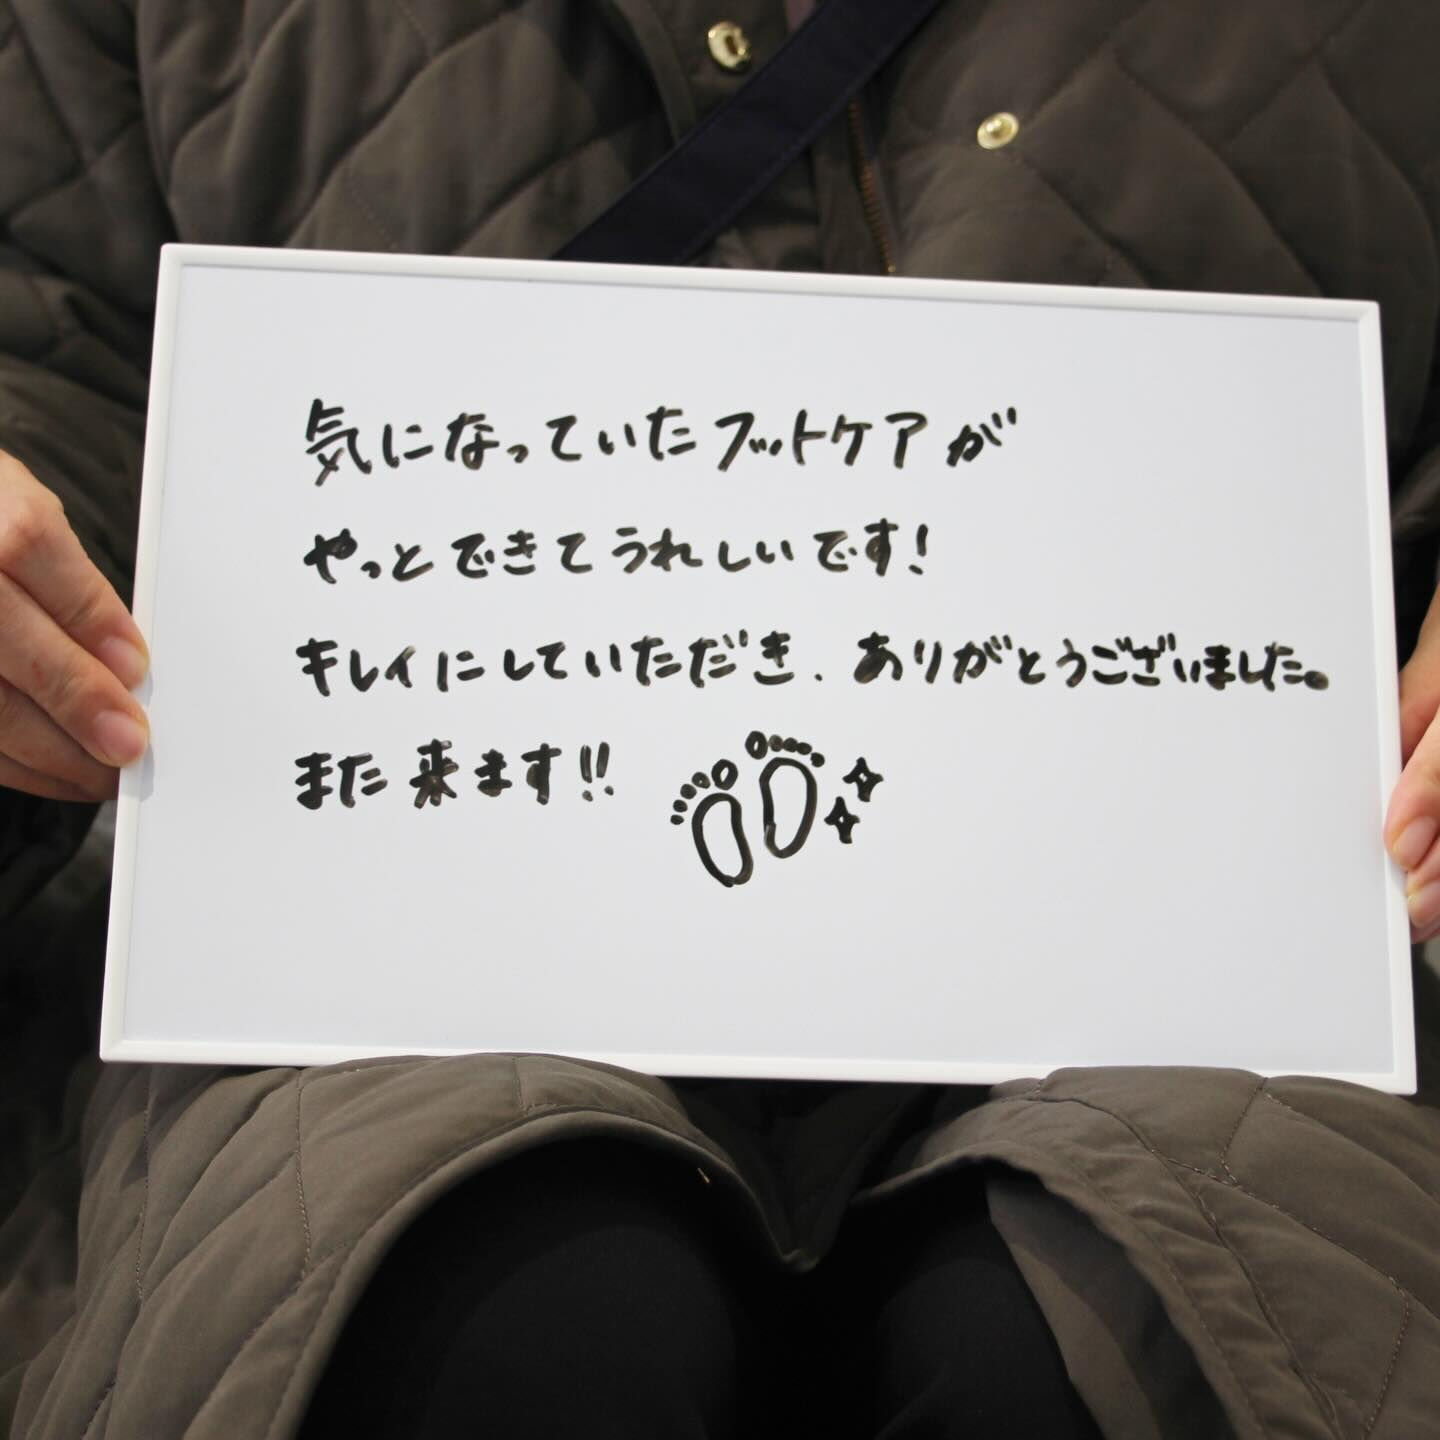 気になっていたフットケアが
やっとできてうれしいです!
キレイにしていただき、ありがとうございました。
また来ます!!